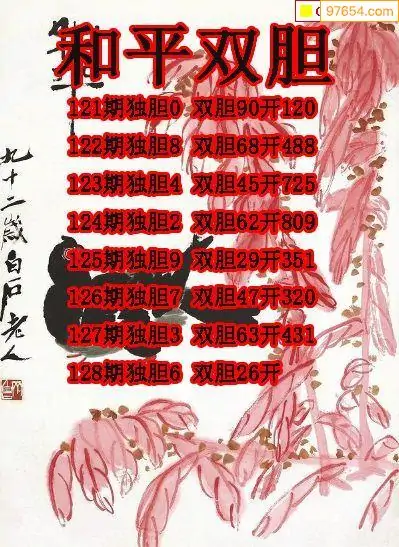 97654.com
和平双胆
121期独胆0 双胆90开120
122期独胆8 双胆68开488
123期独胆4 双胆45开725
124期独胆2 双胆62开809
125期独胆9 双胆29开351
126期独胆7 双胆47开320
127期独胆3 双胆63开431
128期独胆6 双胆26开
九十二岁白石老人